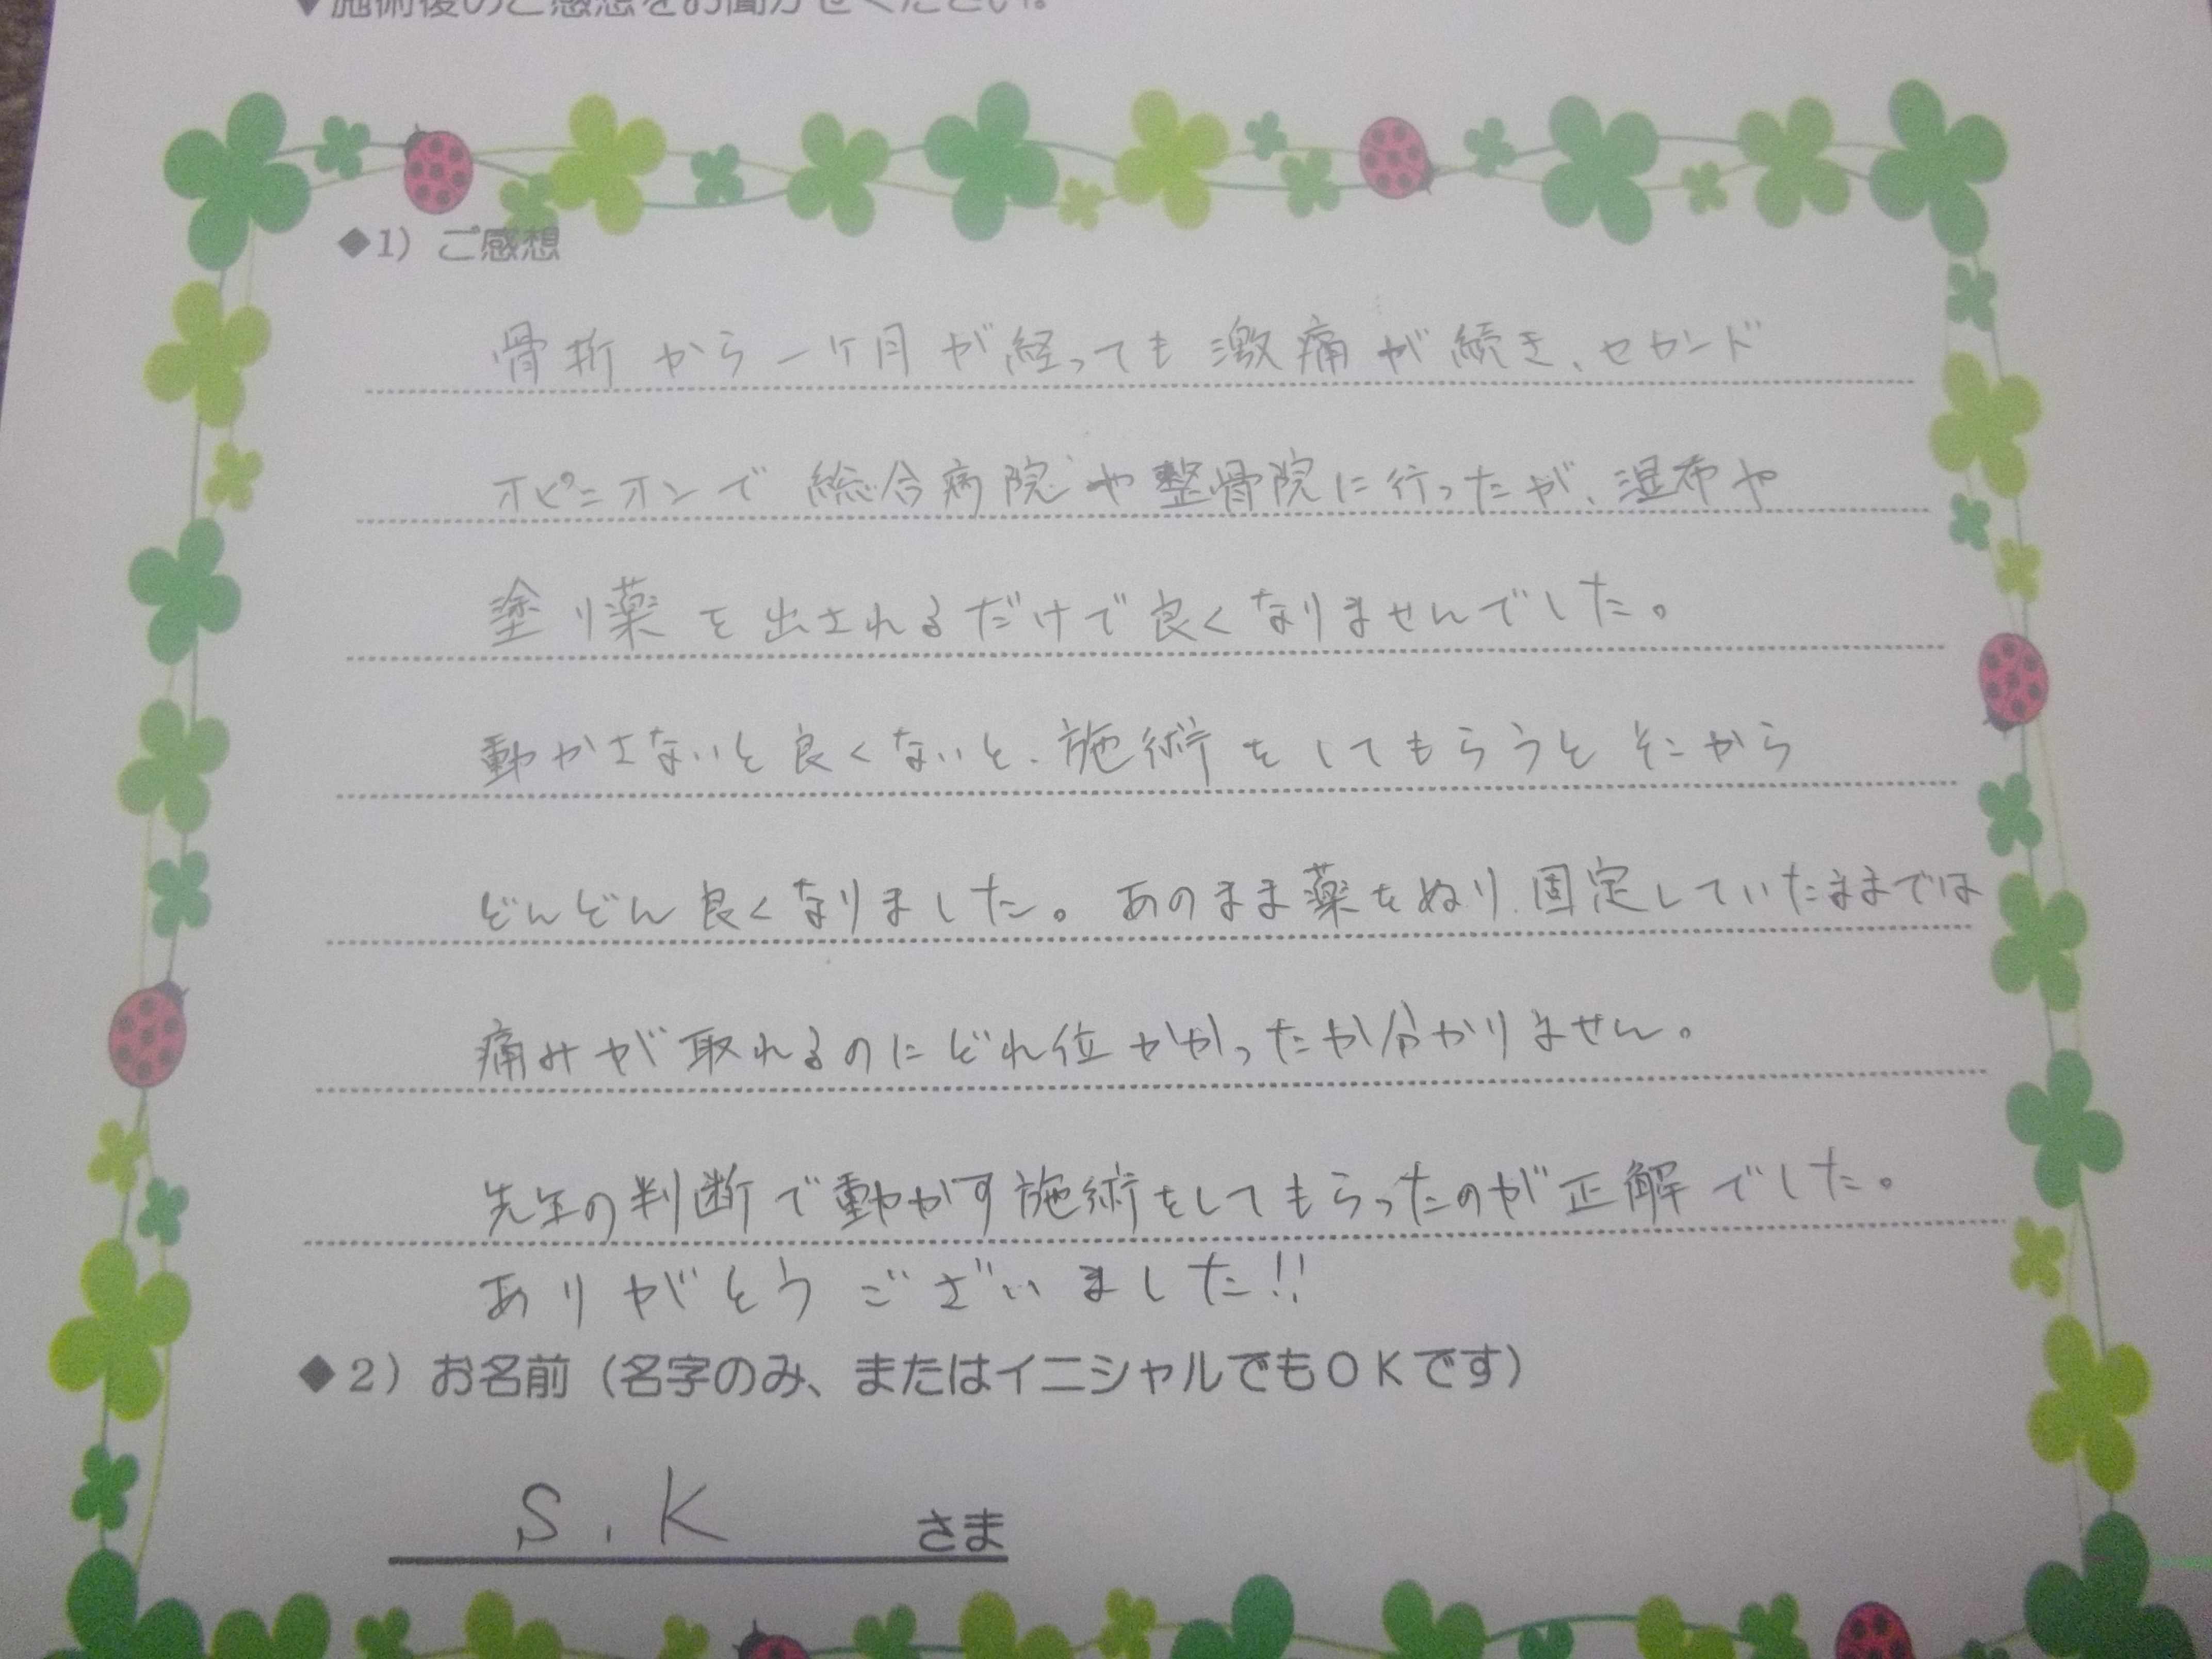 ▼施術後のご感想をお聞かせください。
◆1）ご感想
骨折から一ヶ月が経っても激痛が続き、セカンド
オピニオンで総合病院や整骨院に行ったが、湿布や
塗り薬を出されるだけで良くなりませんでした。
動かさないと良くないと、施術をしてもらうとそこから
どんどん良くなりました。あのまま薬をぬり、固定していたままでは
痛みが取れるのにどれ位かかったか分かりません。
先生の判断で動かす施術をしてもらったのが正解でした。
ありがとうございました!!
◆2）お名前（名字のみ、またはイニシャルでもOKです）
S.K さま